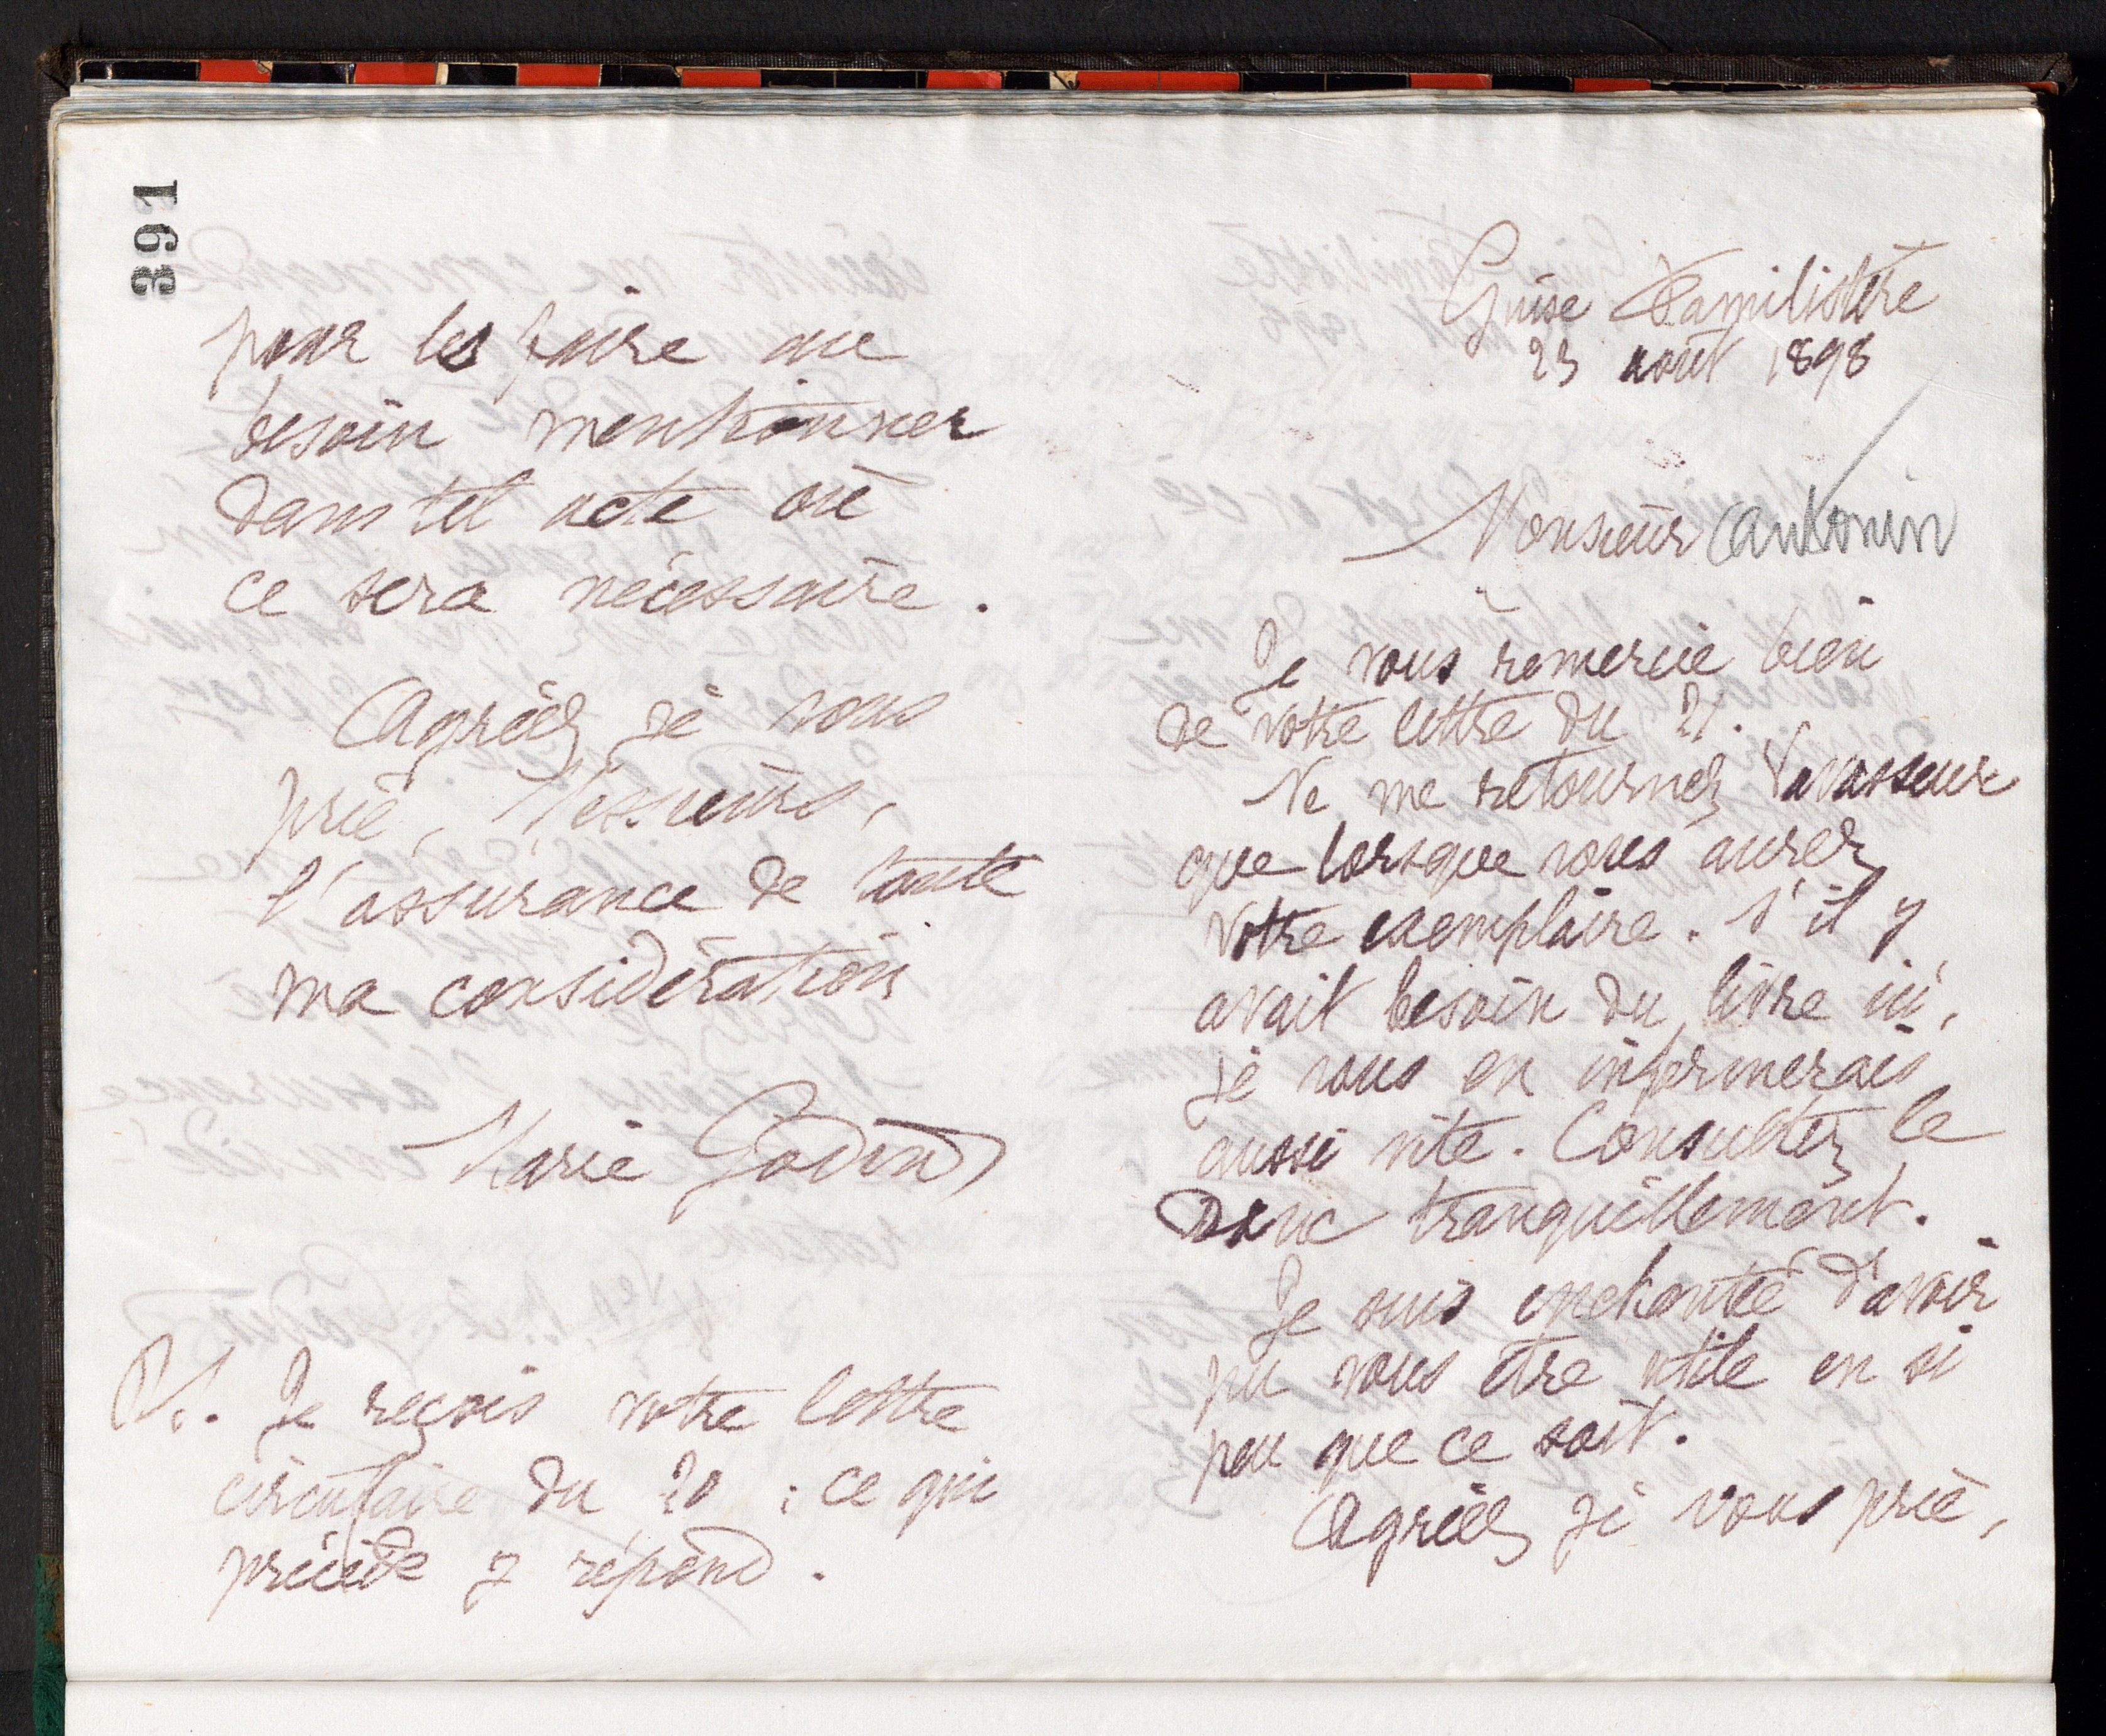 391
pour les faire au
besoin mentionner
dans tel acte où
ce sera nécessaire.
Agréez je vous
prie, Messieurs,
l'assurance de toute
ma considération
Marie Godin
P.S. Je reçois votre lettre
circulaire du 20 : ce qui
précède y répond.
Guise Familistère
23 août 1898
Monsieur Antonin
Je vous remercie bien
de votre lettre du 21.
Ne me retournez Vavasseur
que lorsque vous aurez
votre exemplaire. S'il y
avait besoin du livre ici,
je vous en informerais
aussi vite. Consultez le
donc tranquillement.
Je suis enchantée d'avoir
pu vous être utile en si
peu que ce soit.
Agréez je vous prie,